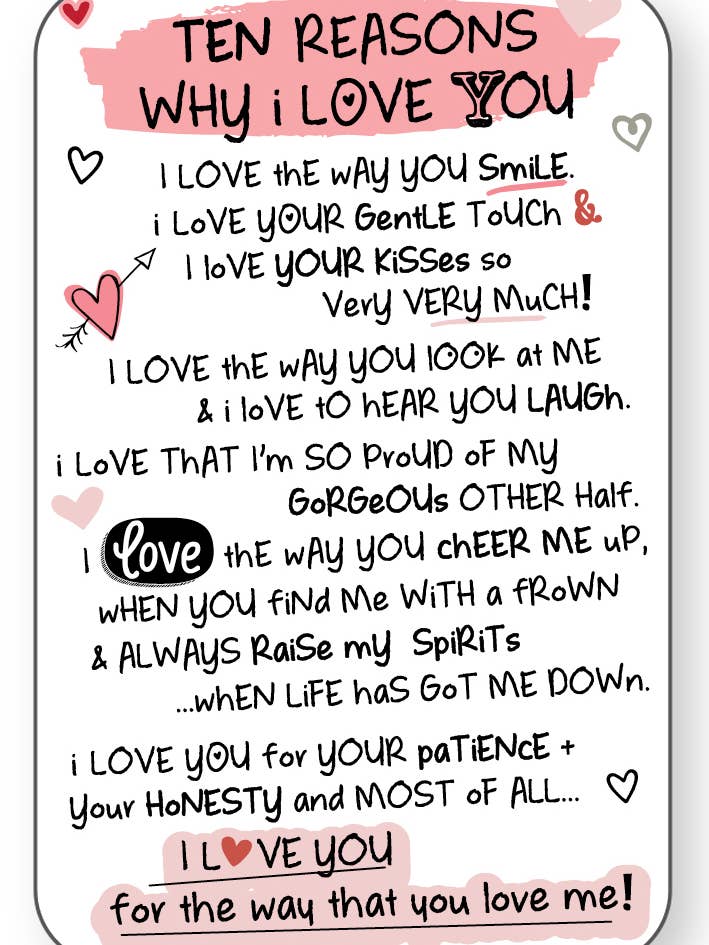 TEN REASONS
WHY i LOVE YOU
I LOVE thE wAY YOU SmiLE.
i LoVE YOUR GentLE ToUCh &
I loVE YOUR KiSSes so
VerY VERY MuCH!
I LOVE thE wAY YOU lOOK at ME
& i loVE tO hEAR YOU LAUGh.
i LoVE ThAT I'm SO ProUD oF MY
GoRGeOUs OTHER Half.
I love thE wAY YOU chEER ME uP,
wHEN YOU fiNd Me WiTH a fRoWN
& ALWAYS RaiSe my SpiRiTs
...whEN LiFE haS GoT ME DOWn.
i LOVE YOU for YOUR paTiENcE +
Your HoNESTY and MOST oF ALL...
I LOVE YOU
for the way that you love me!